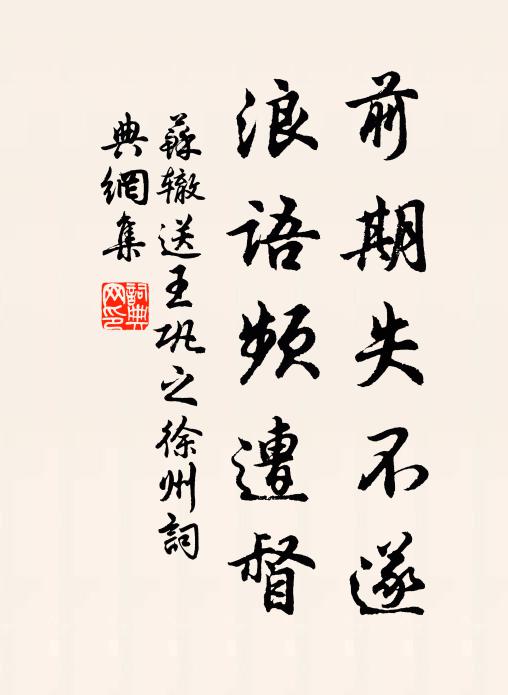 前期失不遂
浪語頻遭督
蘇轍送王巩之徐州詞
典網集
詞典网印